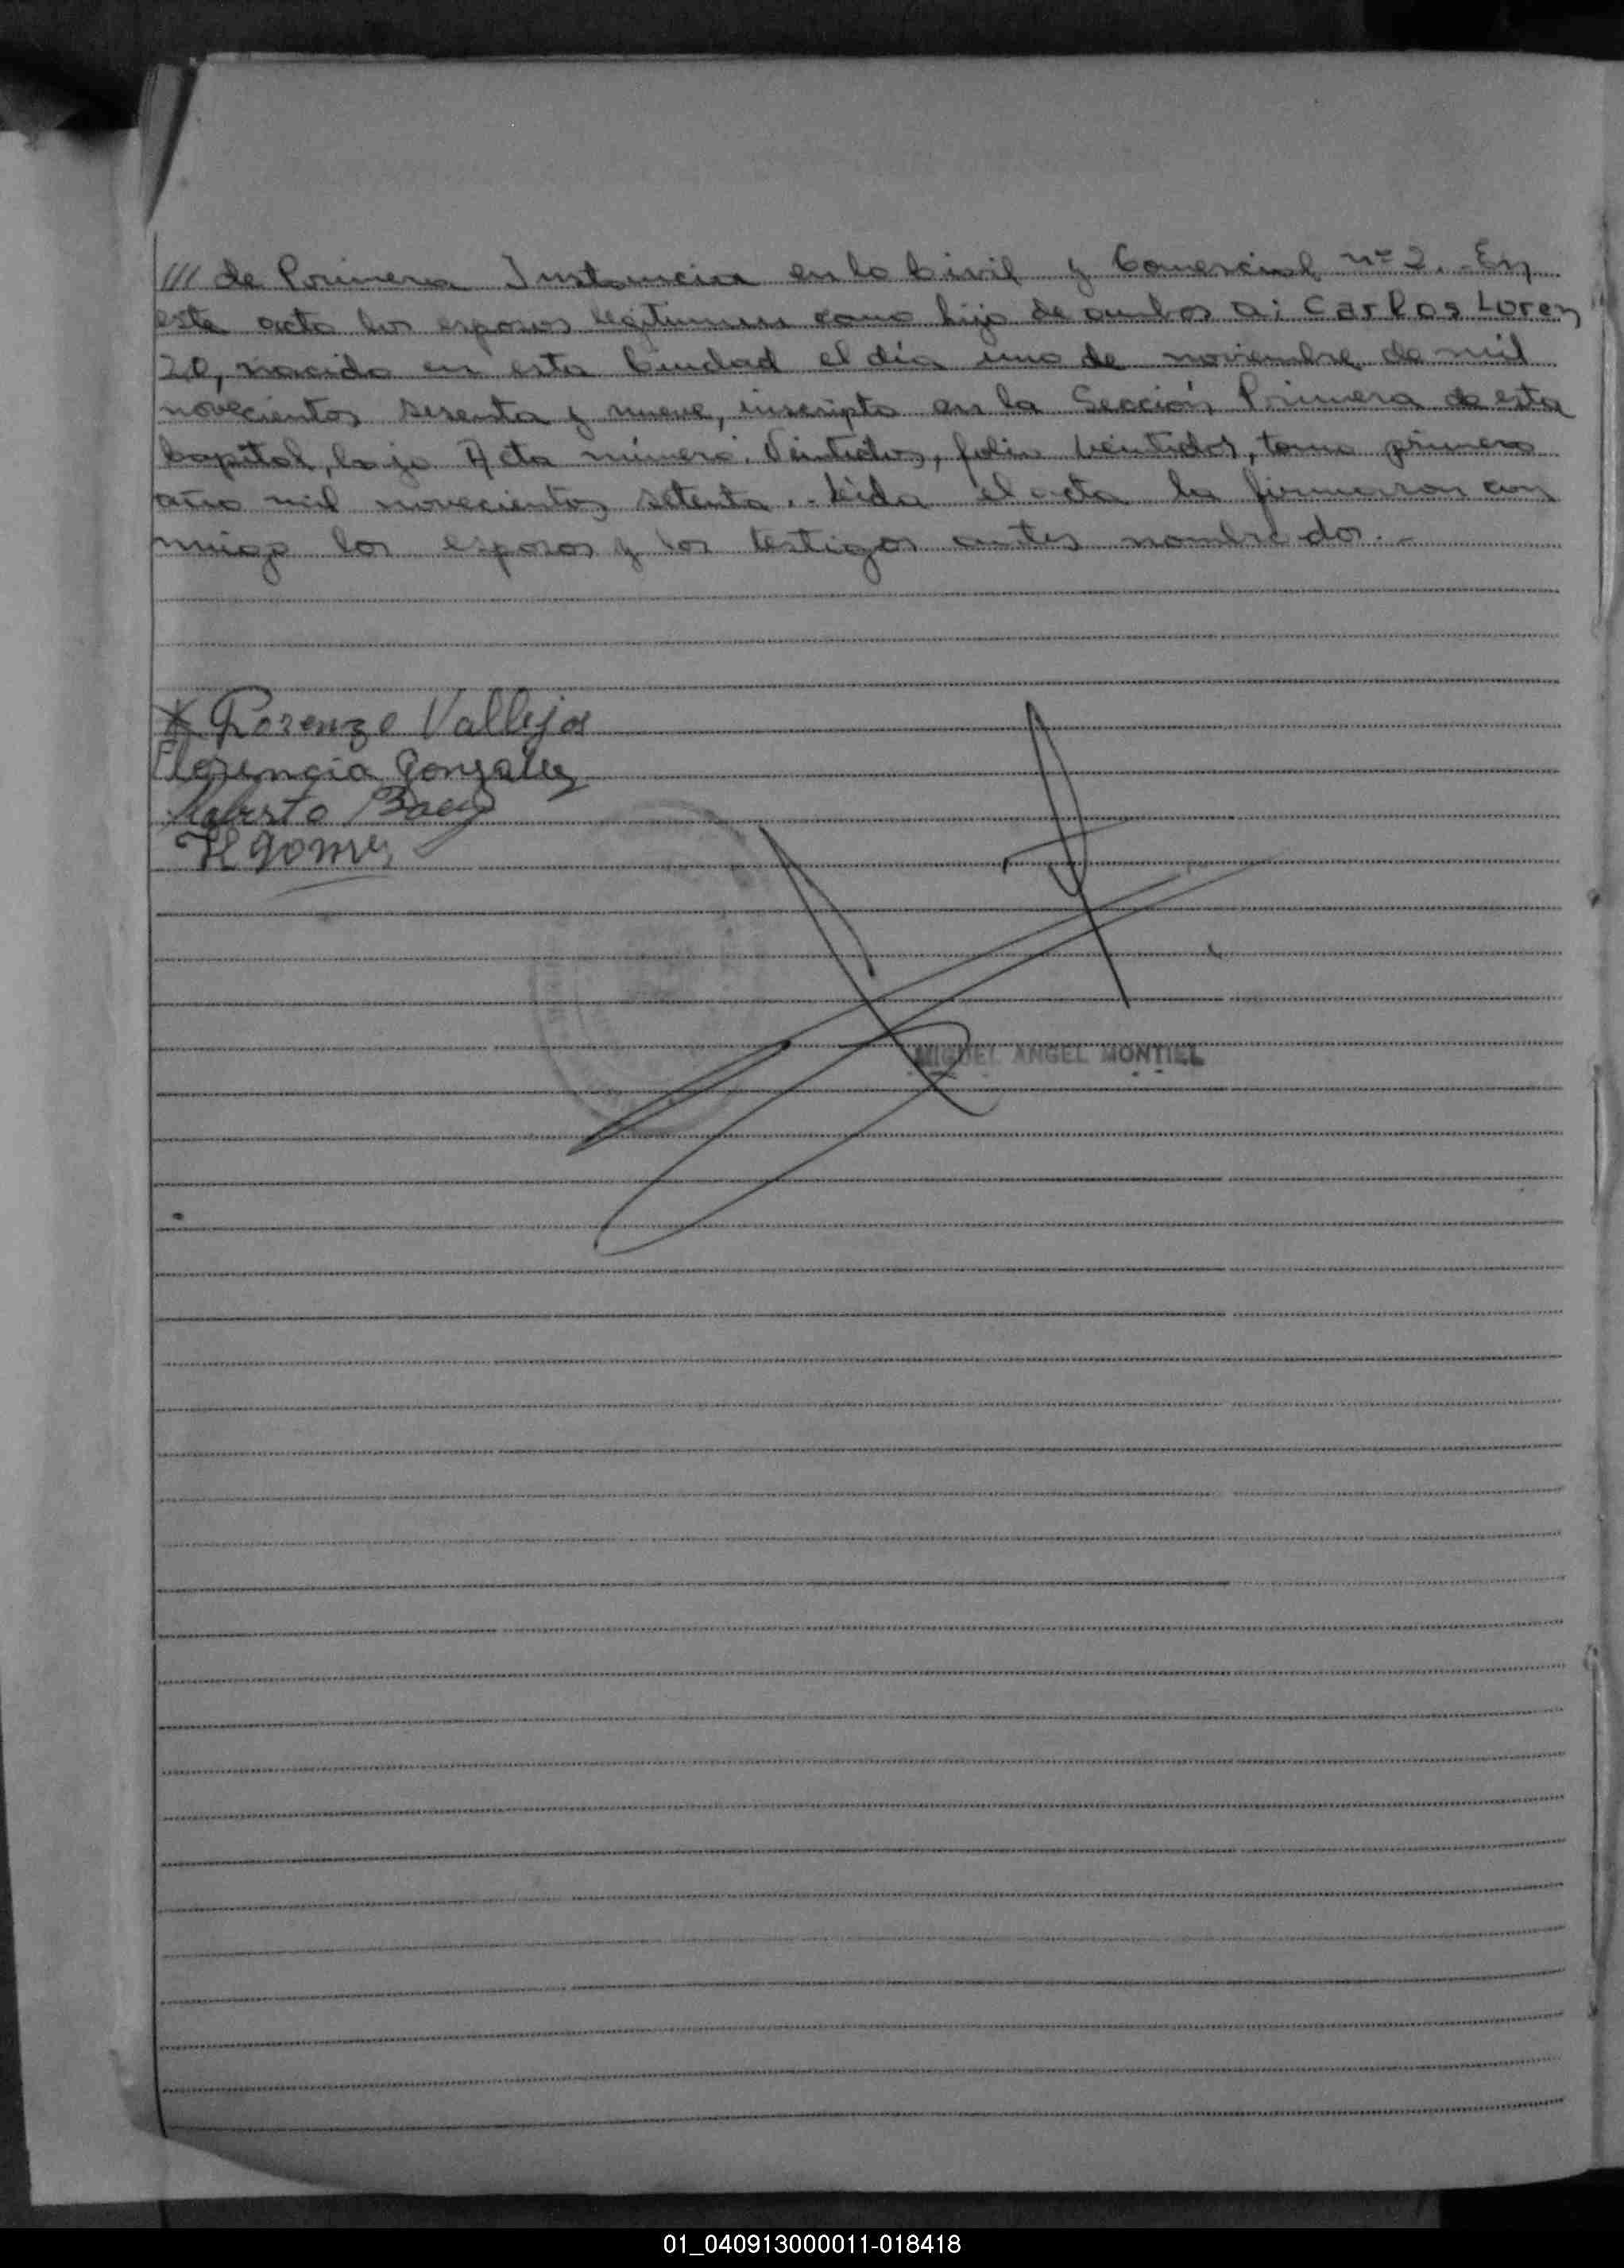 /// de Primera Instancia en lo Civil y Comercial nº 2. - En
este acto los esposos legitiman como hijo de ambos a: Carlos Loren
zo, nacido en esta Ciudad el día uno de noviembre de mil
novecientos sesenta y nueve, inscripto en la Sección Primera de esta
Capital, bajo Acta número: Veintidos, folio veintidos, tomo primero
año mil novecientos setenta. - Leída el acta la firmaron con
migo los esposos y los testigos antes nombrados. -
x Lorenzo Vallejos
Florencia Gonzalez
Roberto Baez
Gomez
MIGUEL ANGEL MONTIEL
01_040913000011-018418